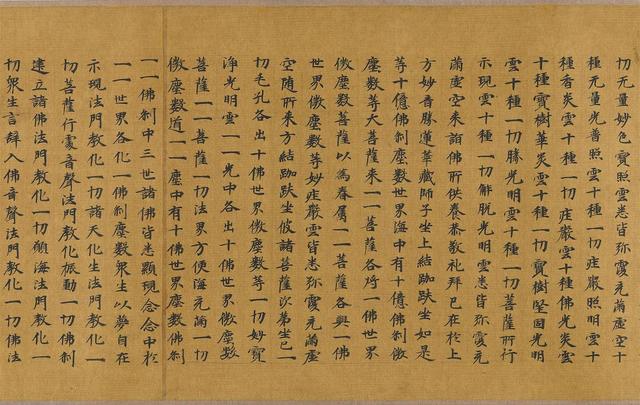 切无量妙色寶照雲悉皆弥覆充滿虛空十
種无量光普照雲十種一切庄嚴照明雲十
種香炎雲十種一切庄嚴雲十種佛光炎雲
十種寶樹華炎雲十種一切寶樹堅固光明
雲十種一切勝光明雲十種一切菩薩所行
示現雲十種一切解脫光明雲悉皆弥覆充
滿虛空来詣佛所供養恭敬礼拜已在於上
方妙音勝蓮華藏師子坐上結跏趺坐如是
等十億佛剎塵數世界海中有十億佛剎微
塵數等大菩薩来一一菩薩各將一佛世界
微塵數菩薩以為眷屬一一菩薩各興一佛
世界微塵數等妙庄嚴雲皆悉弥覆充滿虛
空随所来方結跏趺坐彼諸菩薩次第坐已一
切毛孔各出十佛世界微塵數等一切妙寶
淨光明雲一一光中各出十佛世界微塵數
菩薩一一菩薩一切法界方便海充滿一切
微塵數道一一塵中有十佛世界塵數佛剎
一一佛剎中三世諸佛皆悉顯現念念中於
一一世界各化一佛剎塵數衆生以夢自在
示現法門教化一切諸天化生法門教化一
切菩薩行處音聲法門教化振動一切佛剎
建立諸佛法門教化一切願海法門教化一
切衆生言辭入佛音聲法門教化一切佛法